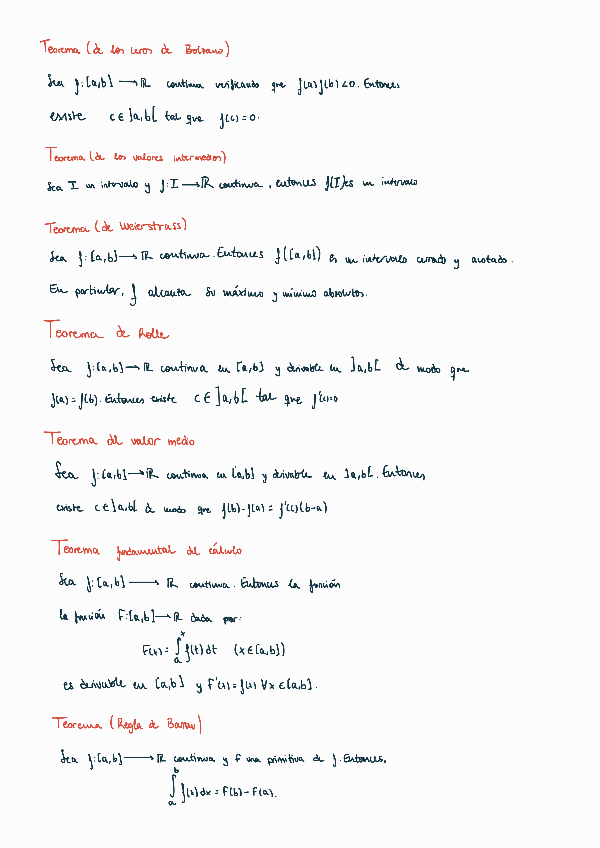 Teorema (de los ceros de Bolzano)
Sea f:[a,b] → ℝ continua verificando que f(a)f(b)<0. Entonces
existe c∈]a,b[ tal que f(c)=0.
Teorema (de los valores intermedios)
Sea I un intervalo y f:I → ℝ continua, entonces f(I) es un intervalo
Teorema (de Weierstrass)
Sea f:[a,b] → ℝ continua. Entonces f([a,b]) es un intervalo cerrado y acotado.
En particular, f alcanza su máximo y mínimo absolutos.
Teorema de Rolle
Sea f:[a,b] → ℝ continua en [a,b] y derivable en ]a,b[ de modo que
f(a)=f(b). Entonces existe c∈]a,b[ tal que f'(c)=0
Teorema del valor medio
Sea f:[a,b] → ℝ continua en [a,b] y derivable en ]a,b[. Entonces,
existe c∈]a,b[ de modo que f(b)-f(a)=f'(c)(b-a)
Teorema fundamental del cálculo
Sea f:[a,b] → ℝ continua. Entonces la función
la función F:[a,b] → ℝ dada por:
F(x)=∫ₐˣ f(t)dt (x∈[a,b])
es derivable en [a,b] y F'(x)=f(x) ∀x∈[a,b].
Teorema (Regla de Barrow)
Sea f:[a,b] → ℝ continua y F una primitiva de f. Entonces,
∫ₐᵇ f(x)dx=F(b)-F(a).